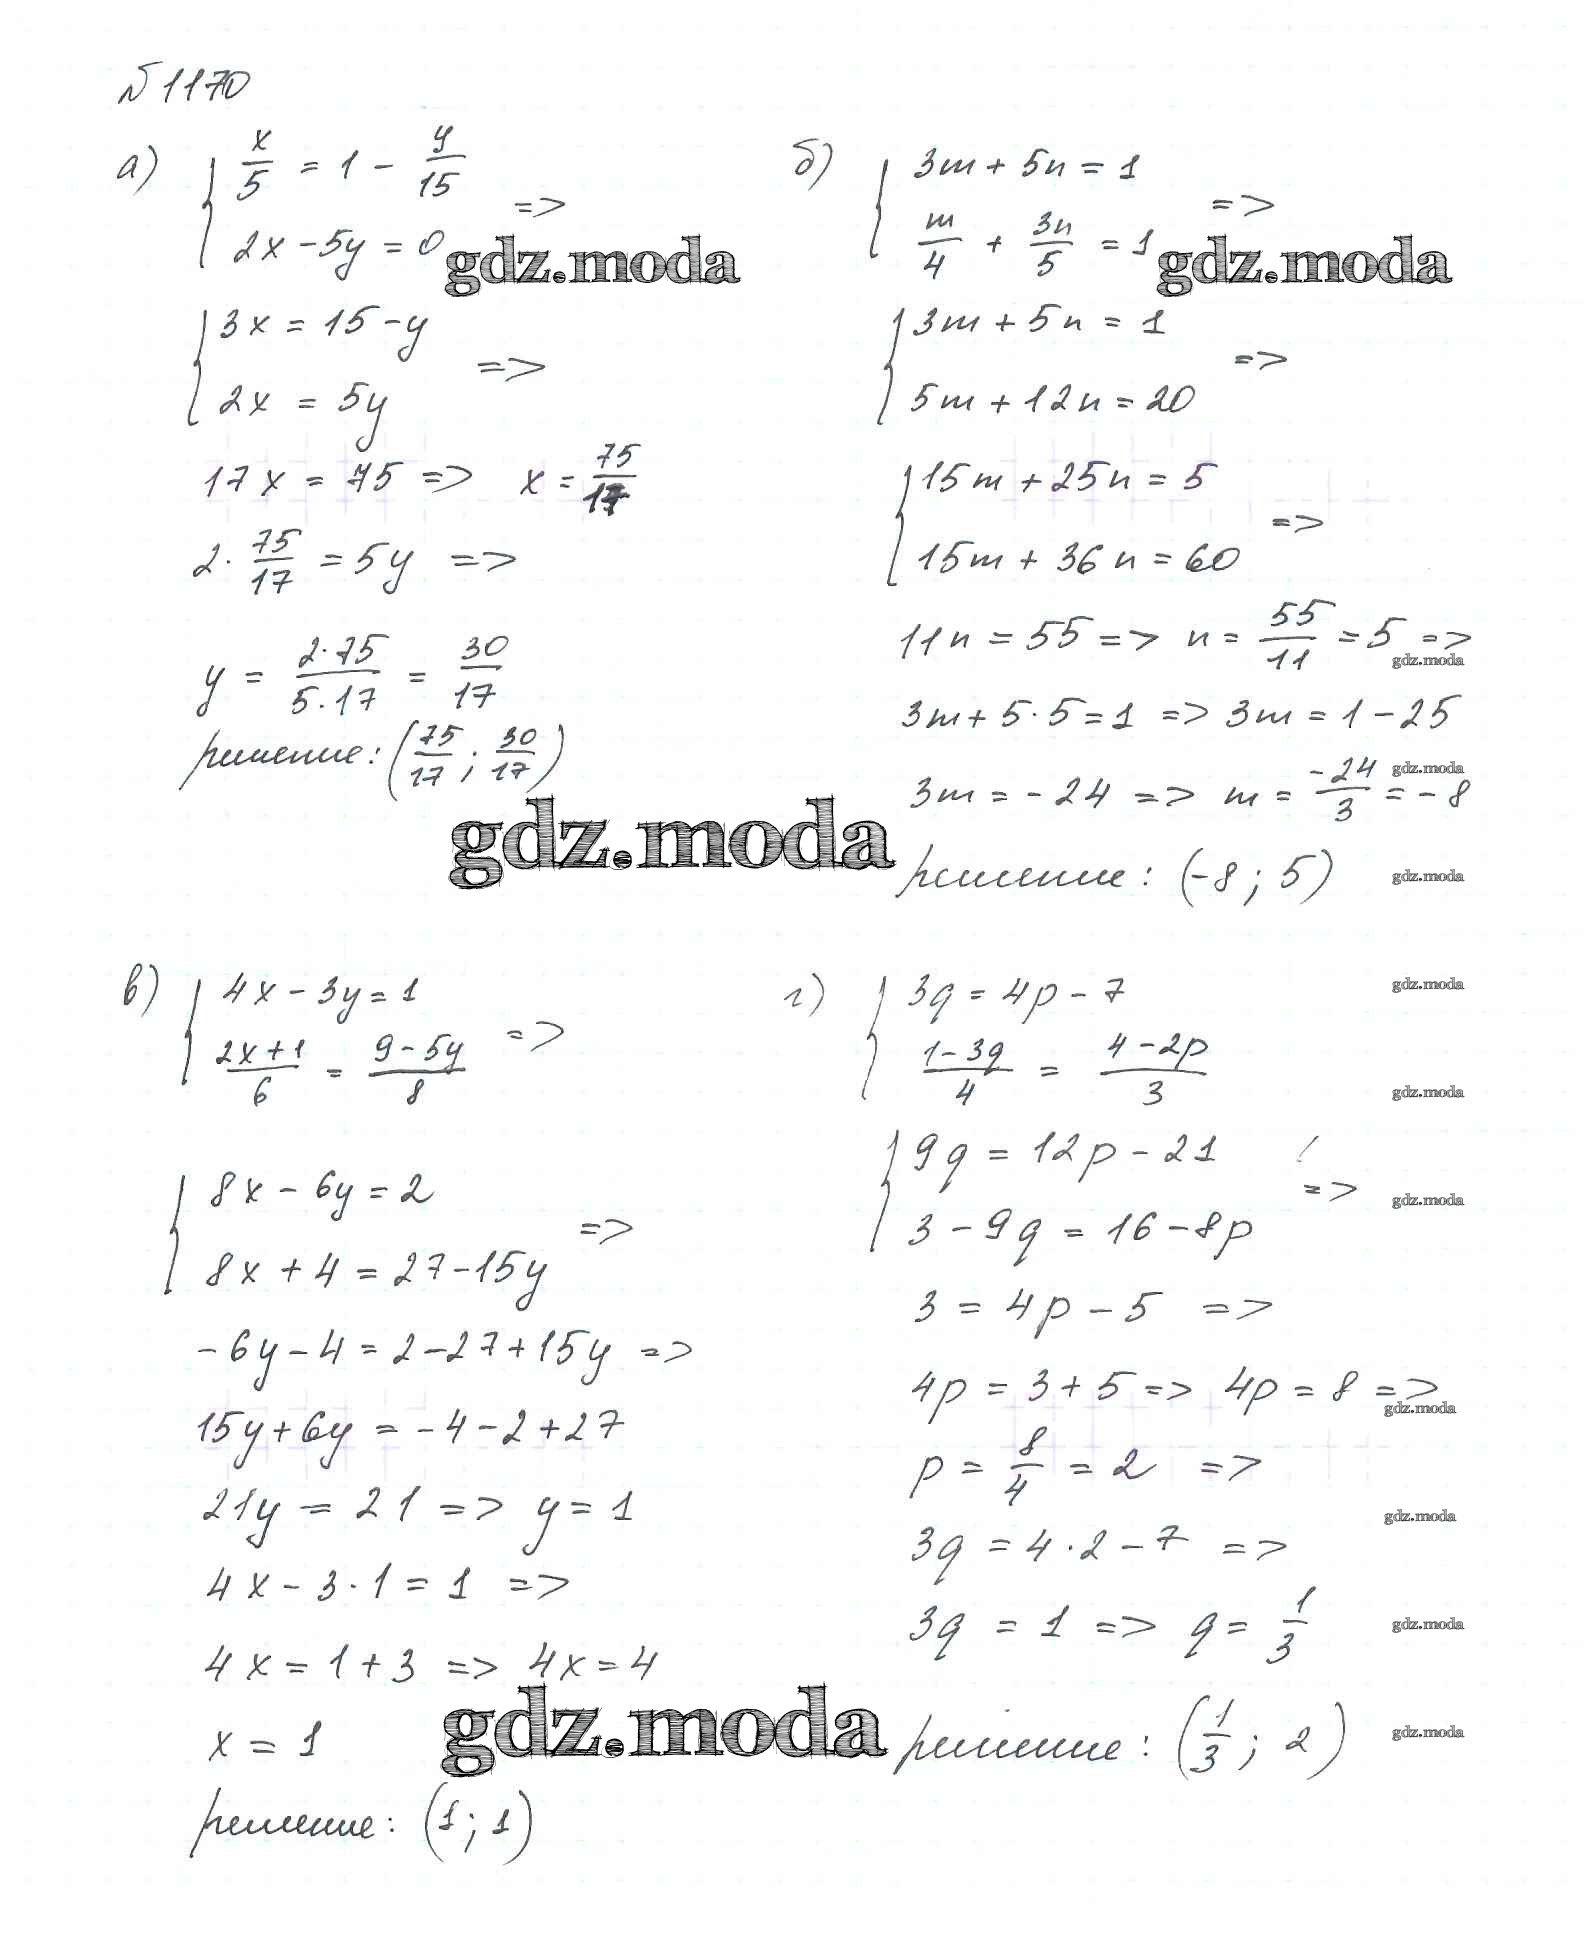 №1170
а) { x/5 = 1 - y/15
2x - 5y = 0 =>
gdz.moda
{ 3x = 15 - y
2x = 5y =>
17x = 75 => x = 75/17
2 · 75/17 = 5y =>
y = 2·75/5·17 = 30/17
решение: (75/17 ; 30/17)
gdz.moda
б) { 3m + 5n = 1
m/4 + 3n/5 = 1 =>
gdz.moda
{ 3m + 5n = 1
5m + 12n = 20 =>
{ 15m + 25n = 5
15m + 36n = 60 =>
11n = 55 => n = 55/11 = 5 =>
gdz.moda
3m + 5·5 = 1 => 3m = 1 - 25
gdz.moda
3m = -24 => m = -24/3 = -8
решение: (-8 ; 5)
gdz.moda
в) { 4x - 3y = 1
2x+1/6 = 9-5y/8 =>
{ 8x - 6y = 2
8x + 4 = 27 - 15y =>
-6y - 4 = 2 - 27 + 15y =>
15y + 6y = -4 - 2 + 27
21y = 21 => y = 1
4x - 3·1 = 1 =>
4x = 1 + 3 => 4x = 4
x = 1
gdz.moda
решение: (1 ; 1)
г) { 3q = 4p - 7
gdz.moda
1-3q/4 = 4-2p/3
gdz.moda
{ 9q = 12p - 21
3 - 9q = 16 - 8p =>
gdz.moda
3 = 4p - 5 =>
4p = 3 + 5 => 4p = 8 =>
gdz.moda
p = 8/4 = 2 =>
gdz.moda
3q = 4·2 - 7 =>
3q = 1 => q = 1/3
gdz.moda
решение: (1/3 ; 2)
gdz.moda